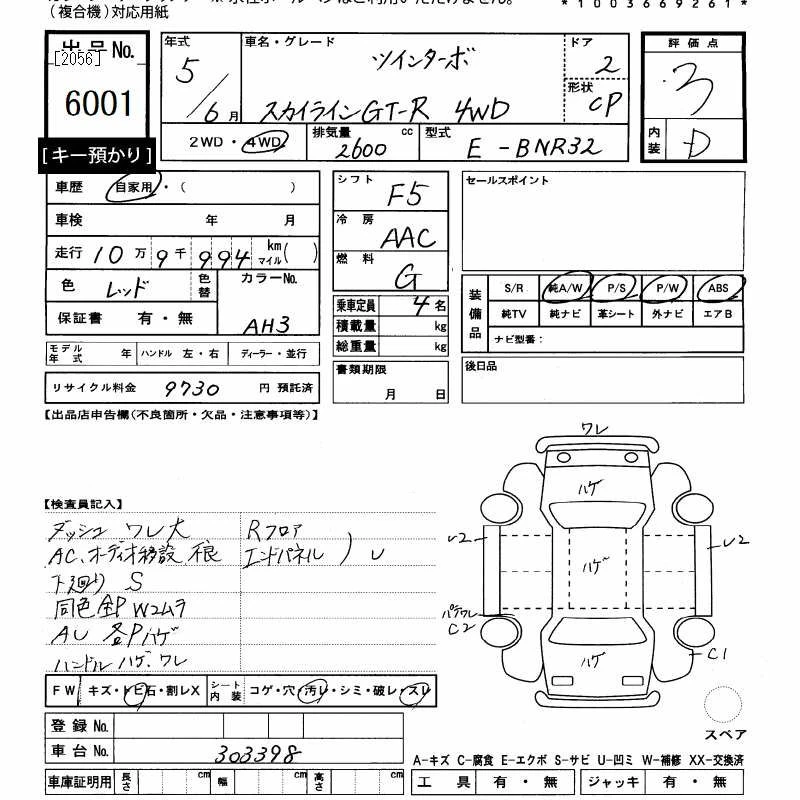 (複合機)対応用紙
*1003669261*
出品No.
[2056]
6001
[キー預かり]
年式 5/6月
車名・グレード
ツインターボ
スカイラインGT-R 4WD
ドア 2
形状 CP
評価点 3
内装 D
2WD・4WD
排気量 2600 cc
型式 E-BNR32
車歴 自家用・( )
車検 年 月
走行 10万9千994 km マイル( )
色 レッド 色替
カラーNo. AH3
保証書 有・無
モデル年式 年 ハンドル 左・右 ディーラー・並行
リサイクル料金 9730 円 預託済
シフト F5
冷房 AAC
燃料 G
乗車定員 4名
積載量 kg
総重量 kg
書類期限
月 日
セールスポイント
装備品
S/R 純A/W P/S P/W ABS
純TV 純ナビ 革シート 外ナビ エアB
ナビ型番:
後日品
【出品店申告欄(不良箇所・欠品・注意事項等)】
【検査員記入】
ダッシュ ワレ大
AC、オーディオ移設 根
下廻り S
同色全P Wコムラ
AU 各Pハゲ
ハンドル ハゲ、ワレ
Rフロア
エンドパネル ) U
ワレ
ハゲ
ハゲ
ハゲ
U2
U2
C2
C1
スペア
FW キズ・トビ石・割レX
シート内装 コゲ・穴・汚レ・シミ・破レ・スレ
登録No.
車台No. 303398
車庫証明用 長さ cm 幅 cm 高さ cm
A-キズ C-腐食 E-エクボ S-サビ U-凹ミ W-補修 XX-交換済
工具 有・無 ジャッキ 有・無